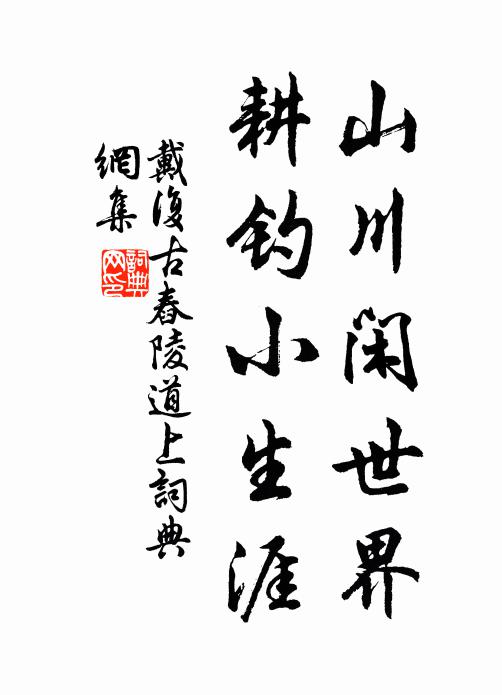 山川閑世界
耕釣小生涯
戴復古舂陵道上詞典
網集
詞典
网印